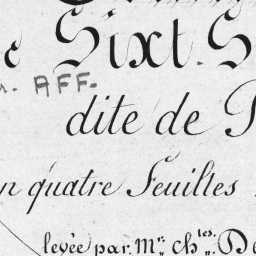 e Sixt. S
. AFF.
dite de
n quatre Feuilles
levée par M.r ch.les De